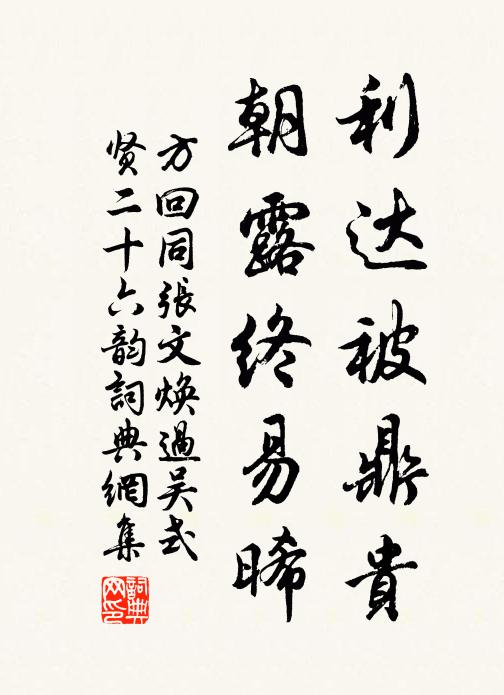 利达被鼎貴
朝露终易晞
方回同張文焕過吴式
贤二十六韵詞典網集
詞典网印